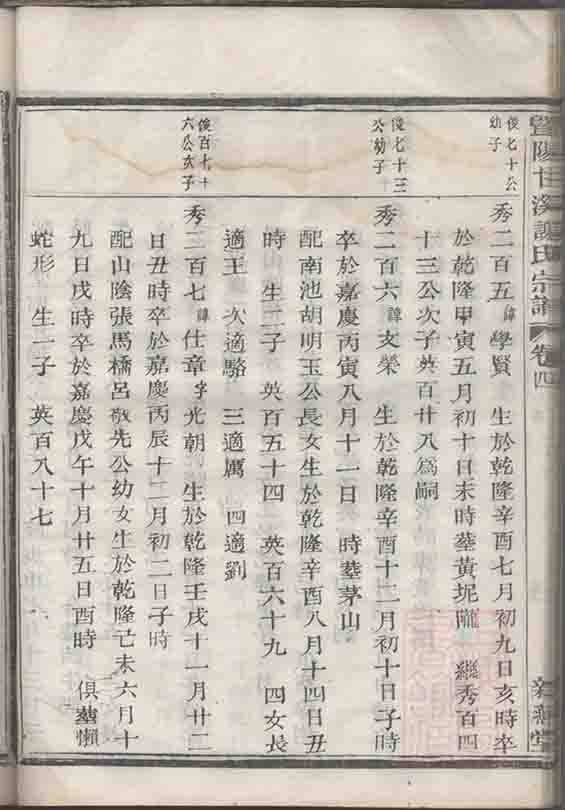 暨陽甘溪謝氏宗譜 卷四
俊七十公
幼子
秀二百五諱學賢 生於乾隆辛酉七月初九日亥時卒
於乾隆甲寅五月初十日未時塟黃坭隴 繼秀百四
十三公次子英百廿八爲嗣
俊七十三
公幼子
秀二百六諱文榮 生於乾隆辛酉十二月初十日子時
卒於嘉慶丙寅八月十一日 時塟茅山
配南池胡明玉公長女生於乾隆辛酉八月十四日丑
時 生二子 英百五十四 英百六十九 四女長
適王 次適駱 三適厲 四適劉
俊百七十
六公次子
秀二百七諱仕章字光朝 生於乾隆壬戌十一月廿二
日丑時卒於嘉慶丙辰十二月初二日子時
配山陰張馬橋呂敬先公幼女生於乾隆己未六月十
九日戌時卒於嘉慶戊午十月廿五日酉時 俱塟懶
蛇形 生一子 英百八十七